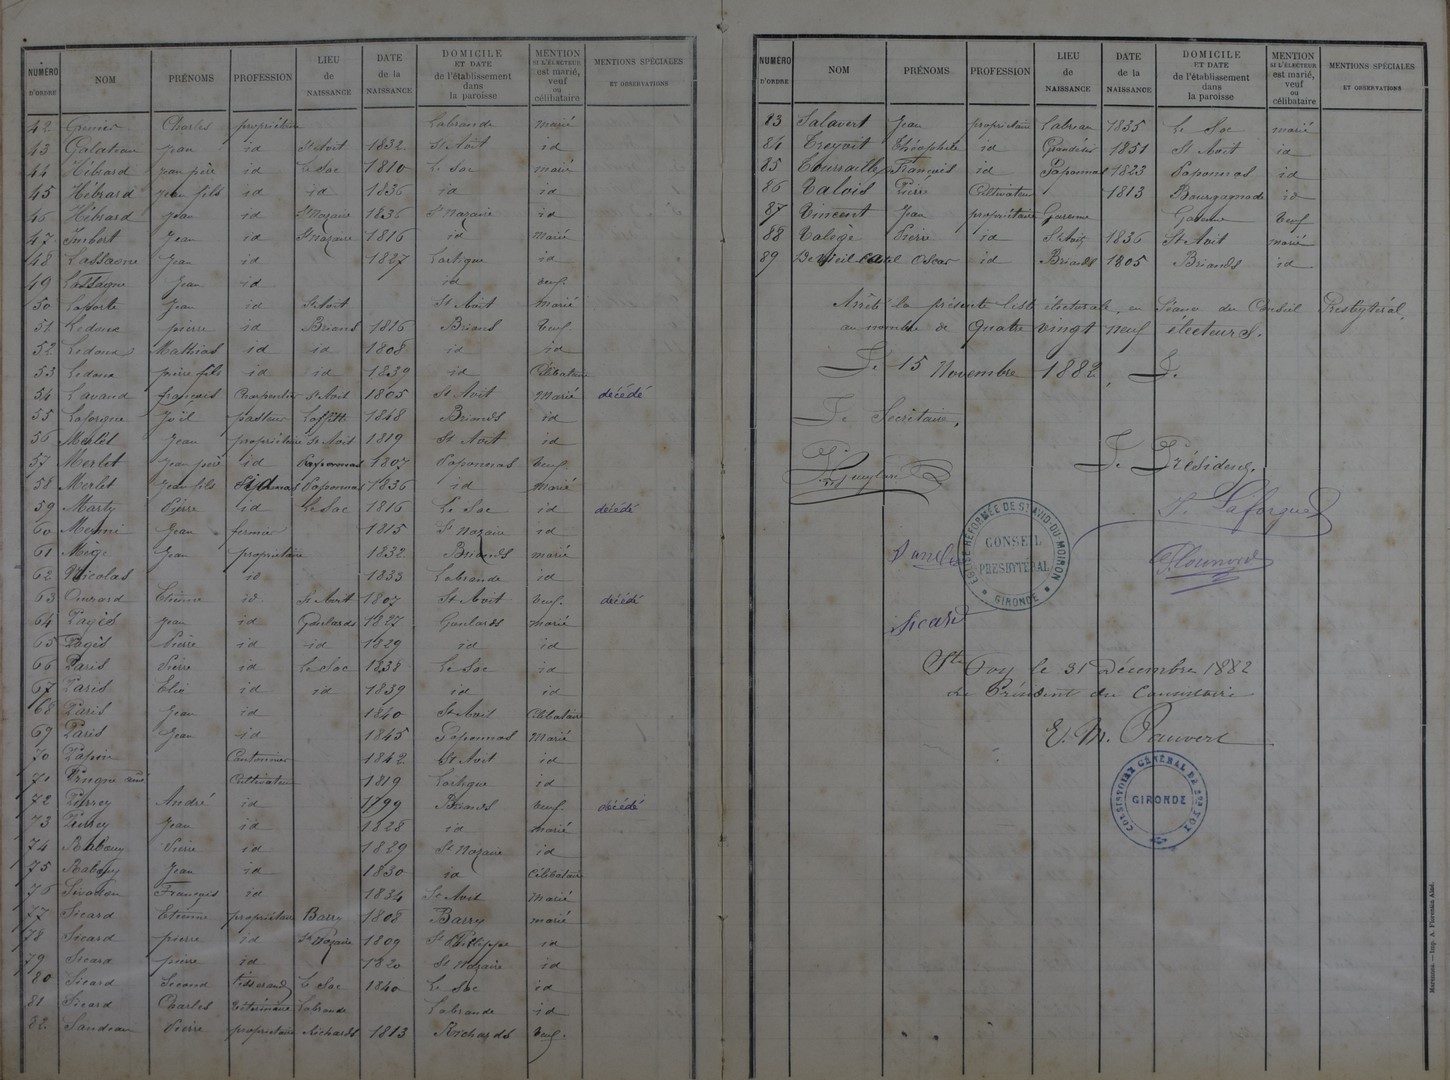 NUMÉRO D'ORDRE NOM PRÉNOMS PROFESSION LIEU de NAISSANCE DATE de la NAISSANCE DOMICILE ET DATE de l'établissement dans la paroisse MENTION SI L'ÉLECTEUR est marié, veuf ou célibataire MENTIONS SPÉCIALES ET OBSERVATIONS
42 Grenier Charles propriétaire Labrande marié
43 Galateau Jean id St Avit 1832 St Avit id
44 Hébrard Jean père id Le Sac 1810 Le Sac marié
45 Hébrard Jean fils id id 1836 id id
46 Hébrard Jean id St Nazaire 1836 St Nazaire id
47 Imbert Jean id St Nazaire 1816 id marié
48 Lassagne Jean id 1827 Lartigue id
49 Lassagne Jean id id veuf
50 Laporte Jean id St Avit St Avit marié
51 Ledoux pierre id Briands 1816 Briands veuf
52 Ledoux Mathias id id 1808 id id
53 Ledoux pierre fils id id 1839 id Célibataire
54 Lavaud françois Charpentier St Avit 1805 St Avit Marié décédé
55 Laforgue Joël pasteur Laffitte 1848 Briands id
56 Merlet Jean propriétaire St Avit 1819 St Avit id
57 Merlet Jean père id Paponnas 1807 Paponnas veuf
58 Merlet Jean fils id Paponnas 1836 id marié
59 Marty Pierre id Le Sac 1816 Le Sac id décédé
60 Jean fermier 1815 St Nazaire id
61 Mège Jean propriétaire 1832 Briands marié
62 Nicolas id 1833 Labrande id
63 Etienne id St Avit 1807 St Avit veuf décédé
64 Pagès Jean id Goulards 1827 Goulards marié
65 Pagès Pierre id id 1829 id id
66 Paris Pierre id Le Sac 1838 Le Sac id
67 Paris Elie id id 1839 id id
68 Paris Jean id 1840 St Avit Célibataire
69 Paris Jean id 1845 Paponnas Marié
70 Papin Cantonnier 1842 St Avit id
71 Cultivateur 1819 Lartigue id
72 Perrey André id 1799 Briands veuf décédé
73 Perrey Jean id 1828 id marié
74 Rabany Pierre id 1829 St Nazaire id
75 Rabany Jean id 1830 id célibataire
76 François id 1834 St Avit Marié
77 Sicard Etienne propriétaire Barry 1808 Barry marié
78 Sicard pierre id St Nazaire 1809 St Philippe id
79 Sicard pierre id 1820 St Nazaire id
80 Sicard Second tisserand Le Sac 1840 Le Sac id
81 Sicard Charles Vétérinaire Labrande Labrande id
82 Sandeau Pierre propriétaire Richards 1813 Richards veuf
NUMÉRO D'ORDRE NOM PRÉNOMS PROFESSION LIEU de NAISSANCE DATE de la NAISSANCE DOMICILE ET DATE de l'établissement dans la paroisse MENTION SI L'ÉLECTEUR est marié, veuf ou célibataire MENTIONS SPÉCIALES ET OBSERVATIONS
83 Salavert Jean propriétaire 1835 Le Sac marié
84 Treyvit Théophile id 1851 St Avit id
85 Toursaille François id Paponnas 1823 Paponnas id
86 Valois Pierre Cultivateur 1813 Bourgagnade id
87 Vincent Jean propriétaire Garenne Garenne veuf
88 Valège Pierre id St Avit 1836 St Avit marié
89 Oscar id Briands 1805 Briands id
Arrêté la présente liste électorale, en Séance du Conseil Presbytéral,
au nombre de Quatre vingt neuf électeurs.
Le 15 Novembre 1882. Le
Le Secrétaire,
Le Président,
J. Laforgue
ÉGLISE RÉFORMÉE DE ST AVID-DU-MOIRON
CONSEIL
PRESBYTÉRAL
GIRONDE
Sicard
Ste Foy le 31 Décembre 1882
Le Président du Consistoire
E. M. Pauvert
CONSISTOIRE GÉNÉRAL DE STE FOY
GIRONDE
Marennes. — Imp. A. Florentin Aîné.